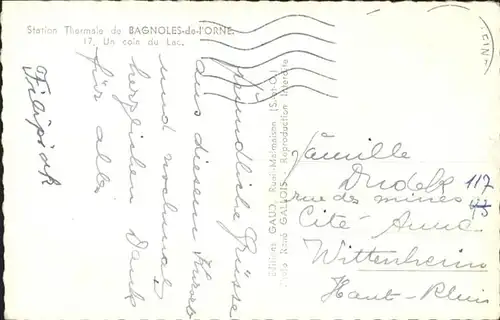 Station Thermale de BAGNOLES-de-l'ORNE.
17. Un coin du Lac.
freundliche Grüsse
aus diesem Kurort
und nochmals
herzlichen Dank
für alles
Filipiak
Editions GAUD, Rueil-Malmaison (S.-et-O.)
Photo René GALLOIS - Reproduction Interdite
Famille
Dudek 117
rue des mines
Cité-Anna
Wittenheim
Haut-Rhin